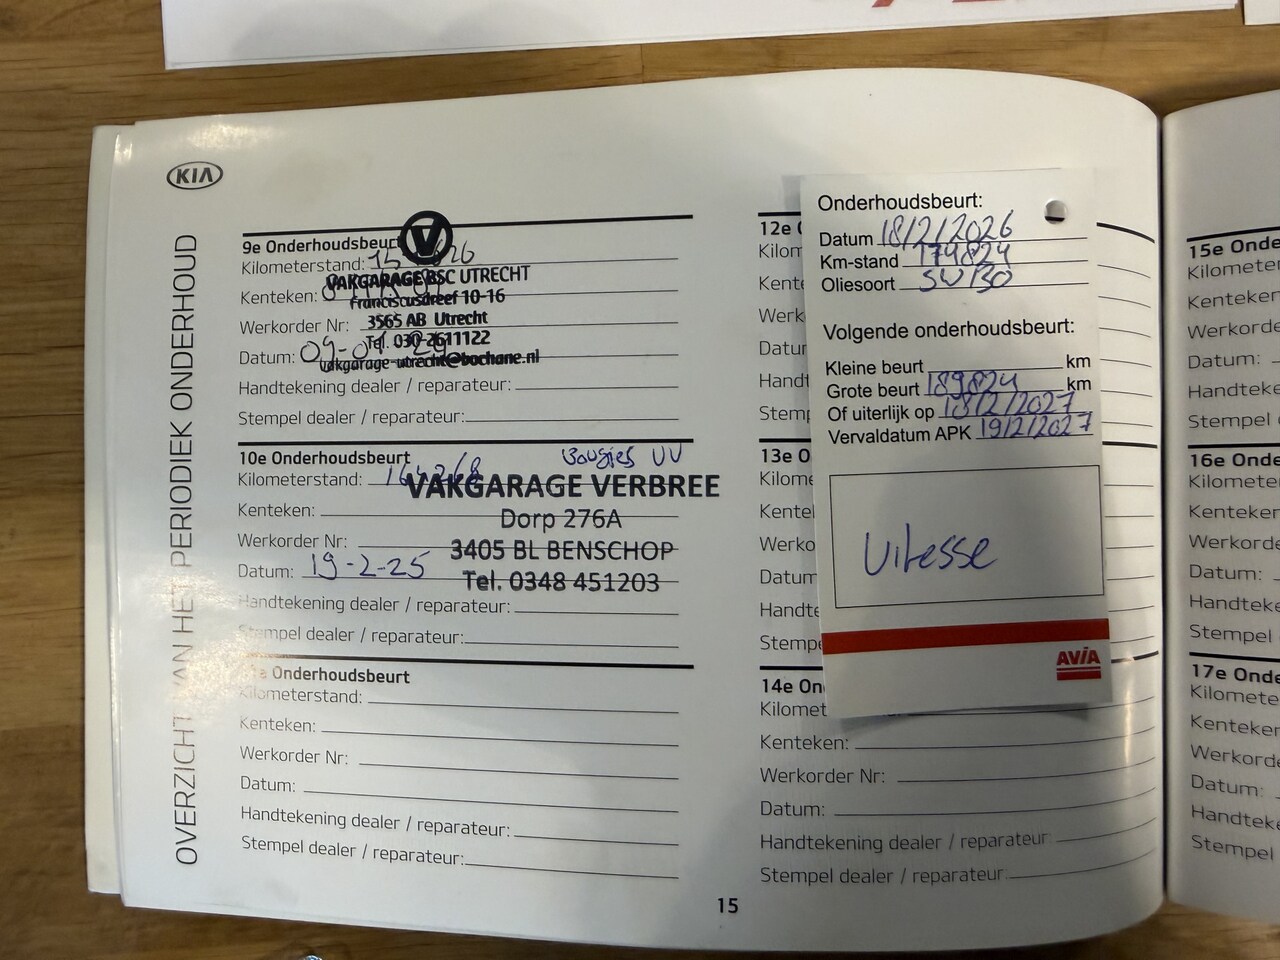 KIA
OVERZICHT VAN HET PERIODIEK ONDERHOUD
9e Onderhoudsbeurt
Kilometerstand:
Kenteken:
Werkorder Nr:
Datum: 09-01-
Handtekening dealer / reparateur:
Stempel dealer / reparateur:
V
VAKGARAGE BSC UTRECHT
Franciscusdreef 10-16
3565 AB Utrecht
Tel. 030-2611122
vakgarage-utrecht@bochane.nl
10e Onderhoudsbeurt
Bougies VV
Kilometerstand: 164268
Kenteken:
Werkorder Nr:
Datum: 19-2-25
Handtekening dealer / reparateur:
Stempel dealer / reparateur:
VAKGARAGE VERBREE
Dorp 276A
3405 BL BENSCHOP
Tel. 0348 451203
Onderhoudsbeurt
Kilometerstand:
Kenteken:
Werkorder Nr:
Datum:
Handtekening dealer / reparateur:
Stempel dealer / reparateur:
12e
Kilom
Kente
Werk
Datur
Handt
Stemp
13e O
Kilome
Kente
Werko
Datum
Handte
Stempe
14e On
Kilomet
Kenteken:
Werkorder Nr:
Datum:
Handtekening dealer / reparateur
Stempel dealer / reparateur
Onderhoudsbeurt:
Datum 18/2/2026
Km-stand 174824
Oliesoort 5W30
Volgende onderhoudsbeurt:
Kleine beurt km
Grote beurt 189824 km
Of uiterlijk op 18/2/2027
Vervaldatum APK 19/2/2027
Vitesse
AVIA
15e Onde
Kilometer
Kenteken
Werkorde
Datum:
Handteke
Stempel
16e Onde
Kilometer
Kenteken
Werkorde
Datum:
Handteke
Stempel
17e Onde
Kilometer
Kenteken
Werkorde
Datum:
Handteke
Stempel
15